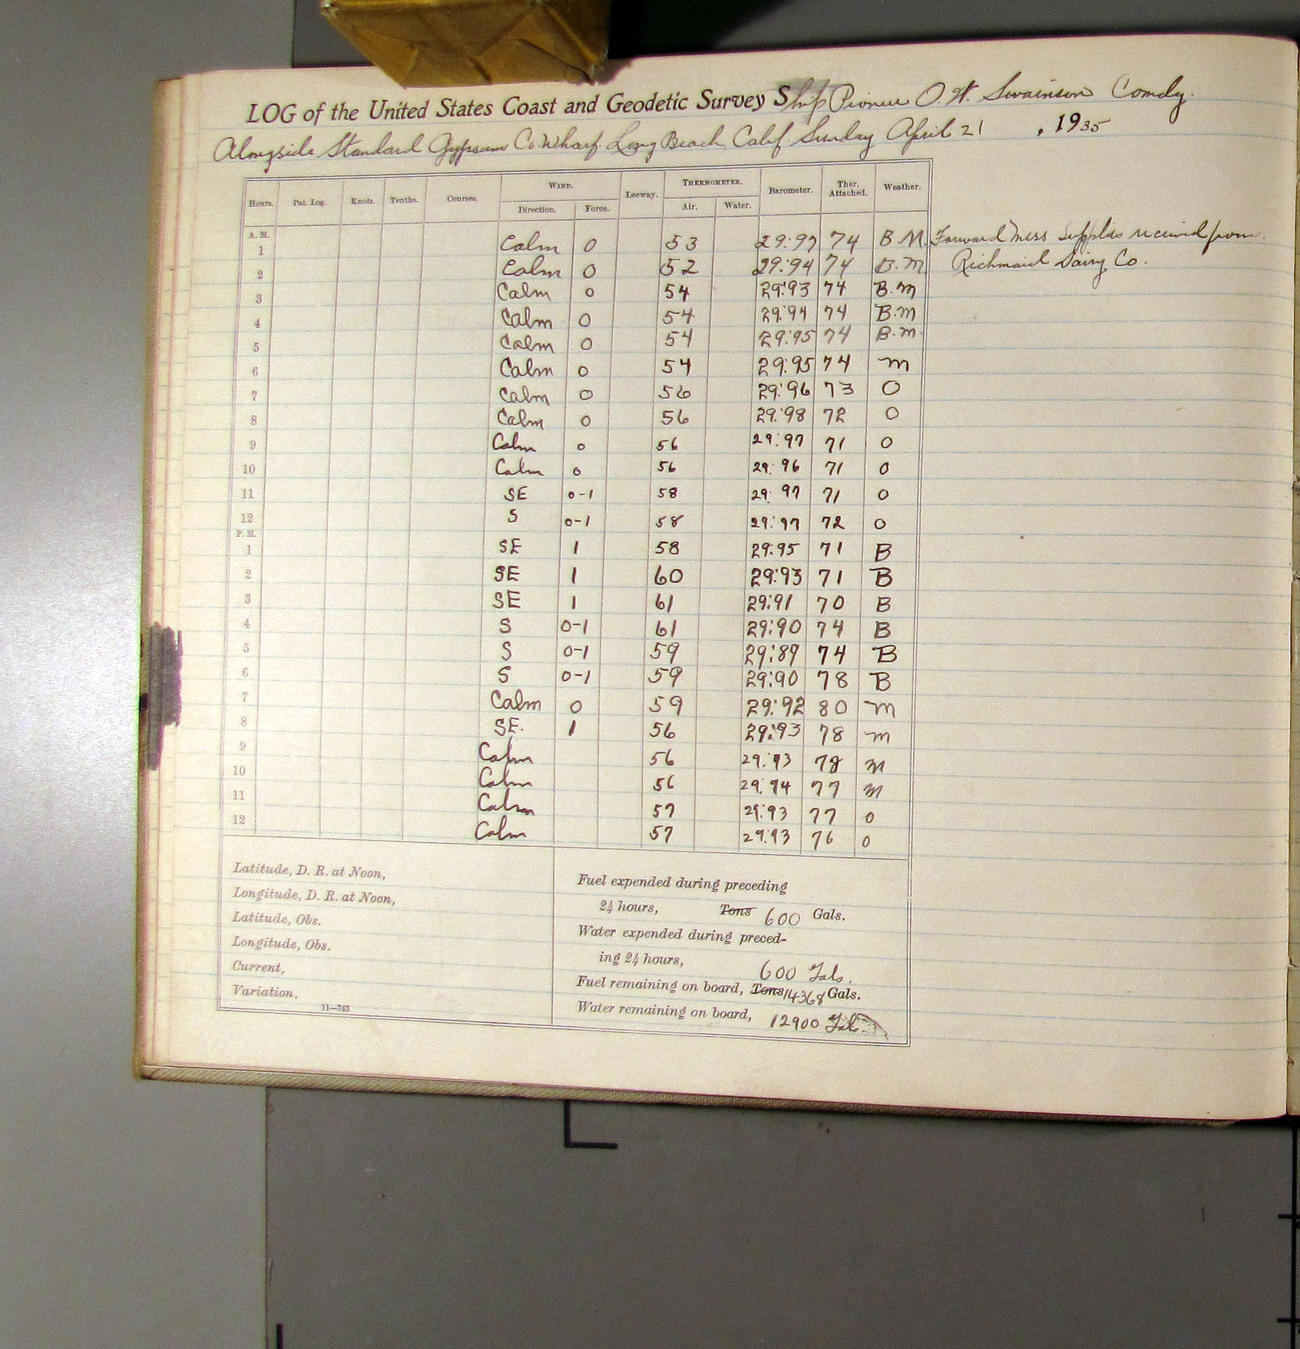 LOG of the United States Coast and Geodetic Survey Ship Pioneer O. W. Swainson Comdg.
Alongside Standard Gypsum Co. Wharf. Long Beach, Calif. Sunday April 21, 1935
Hours. Pat. Log. Knots. Tenths. Courses. WIND. Leeway. THERMOMETER. Barometer. Ther. Attached. Weather.
Direction. Force. Air. Water.
A. M.
1 Calm 0 53 29:97 74 B.M. Forward mess supplies received from
2 Calm 0 52 29:94 74 B.M Richmaid Dairy Co.
3 Calm 0 54 29:93 74 B.M
4 Calm 0 54 29:94 74 B.M
5 Calm 0 54 29:95 74 B.M.
6 Calm 0 54 29:95 74 M
7 Calm 0 56 29:96 73 O
8 Calm 0 56 29:98 72 O
9 Calm 0 56 29:97 71 O
10 Calm 0 56 29:96 71 O
11 SE 0-1 58 29:97 71 O
12 S 0-1 58 29:97 72 O
P. M.
1 SE 1 58 29:95 71 B
2 SE 1 60 29:93 71 B
3 SE 1 61 29:91 70 B
4 S 0-1 61 29:90 74 B
5 S 0-1 59 29:89 74 B
6 S 0-1 59 29:90 78 B
7 Calm 0 59 29:92 80 M
8 SE. 1 56 29:93 78 M
9 Calm 56 29:93 78 M
10 Calm 56 29:94 77 M
11 Calm 57 29:93 77 O
12 Calm 57 29:93 76 O
Latitude, D. R. at Noon,
Longitude, D. R. at Noon,
Latitude, Obs.
Longitude, Obs.
Current,
Variation,
11—763
Fuel expended during preceding
24 hours, Tons 600 Gals.
Water expended during preced-
ing 24 hours, 600 Gals.
Fuel remaining on board, Tons 14368 Gals.
Water remaining on board, 12900 Gals.